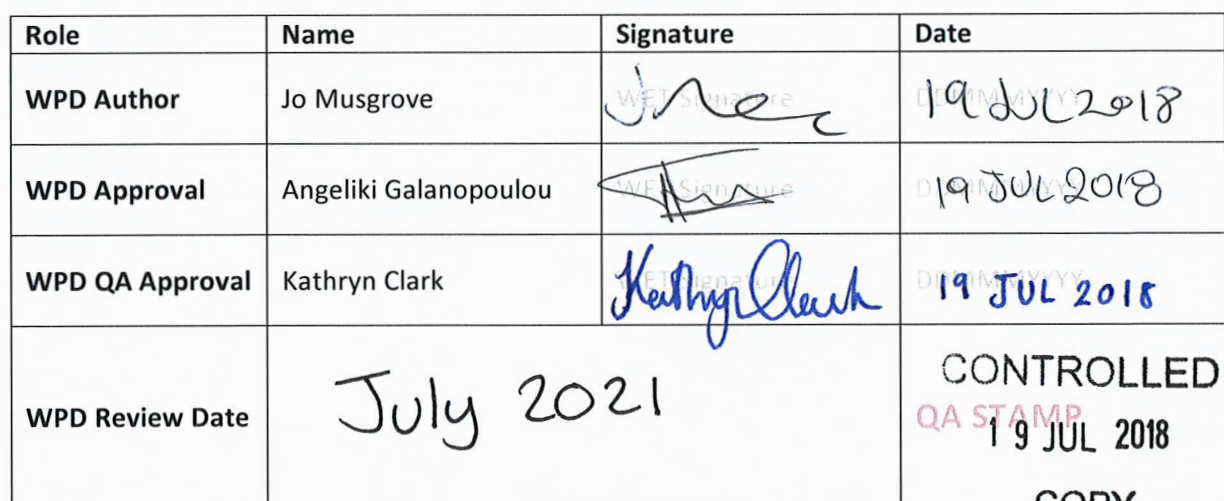 Role Name Signature Date
WPD Author Jo Musgrove WET Signature DDMMMYYYY 19 JUL 2018
WPD Approval Angeliki Galanopoulou WET Signature DDMMMYYYY 19 JUL 2018
WPD QA Approval Kathryn Clark WET Signature Kathryn Clark DDMMMYYYY 19 JUL 2018
WPD Review Date July 2021
CONTROLLED
QA STAMP
19 JUL 2018
COPY